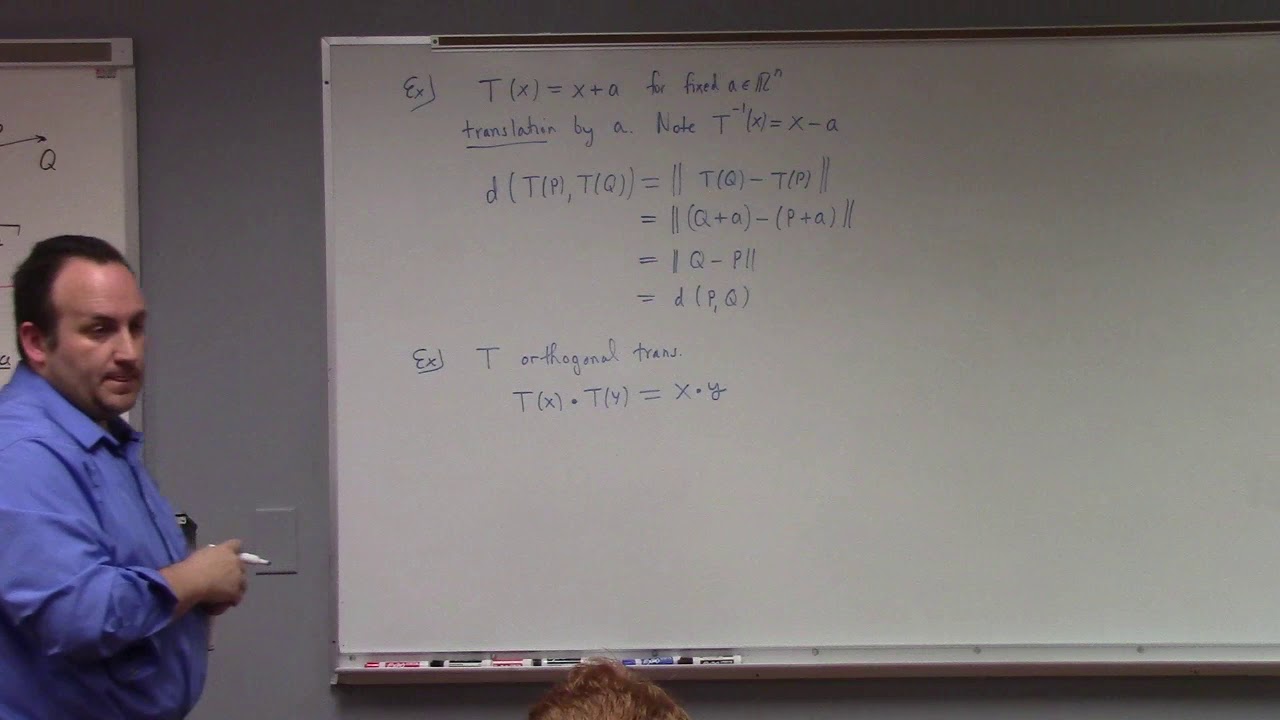 Q
a
Ex) T(x) = x + a for fixed a ∈ ℝⁿ
translation by a. Note T⁻¹(x) = x − a
d(T(P), T(Q)) = ‖ T(Q) − T(P) ‖
= ‖(Q + a) − (P + a)‖
= ‖ Q − P ‖
= d(P, Q)
Ex) T orthogonal trans.
T(x) • T(y) = x • y